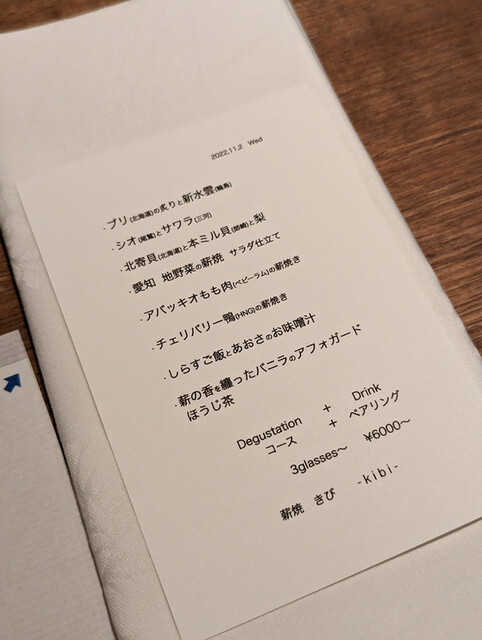 2022.11.2 Wed
・ブリ(北海道)の炙りと新水雲(輪島)
・シオ(尾鷲)とサワラ(三河)
・北寄貝(北海道)と本ミル貝(師崎)と梨
・愛知 地野菜の薪焼 サラダ仕立て
・アバッキオもも肉(ベビーラム)の薪焼き
・チェリバリー鴨(HNG)の薪焼き
・しらすご飯とあおさのお味噌汁
・薪の香を纏ったバニラのアフォガード
ほうじ茶
Degustation + Drink
コース + ペアリング
3glasses〜 ¥6000〜
薪焼 きび -kibi-